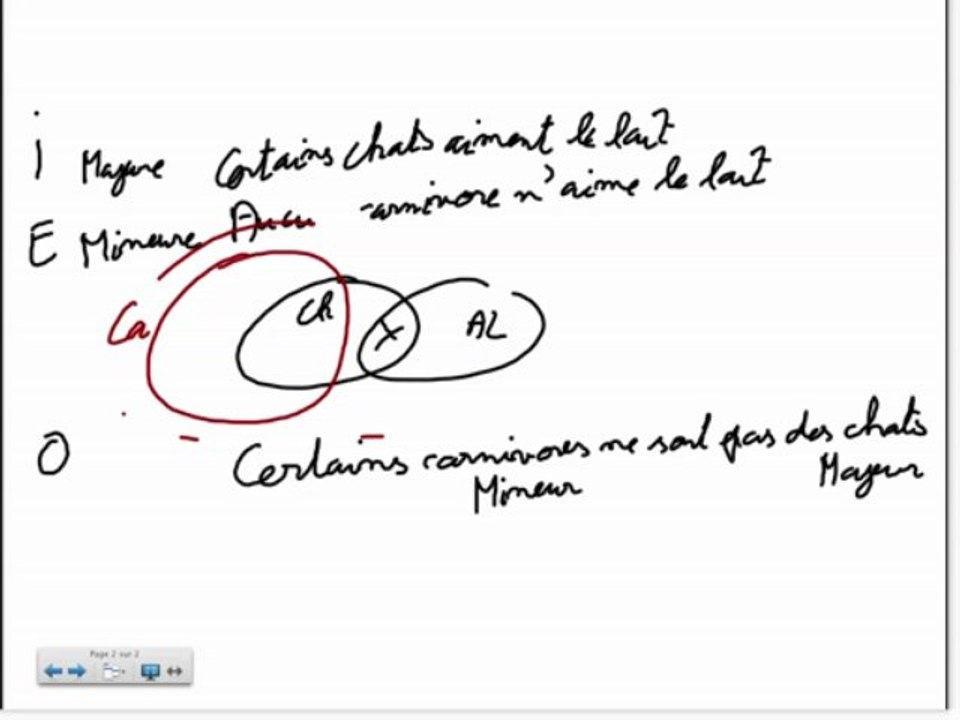 I Majeure Certains chats aiment le lait
E Mineure Aucu carnivore n'aime le lait
Ca
Ch
X
AL
O Certains carnivores ne sont pas des chats
Mineur
Majeur
Page 2 sur 2